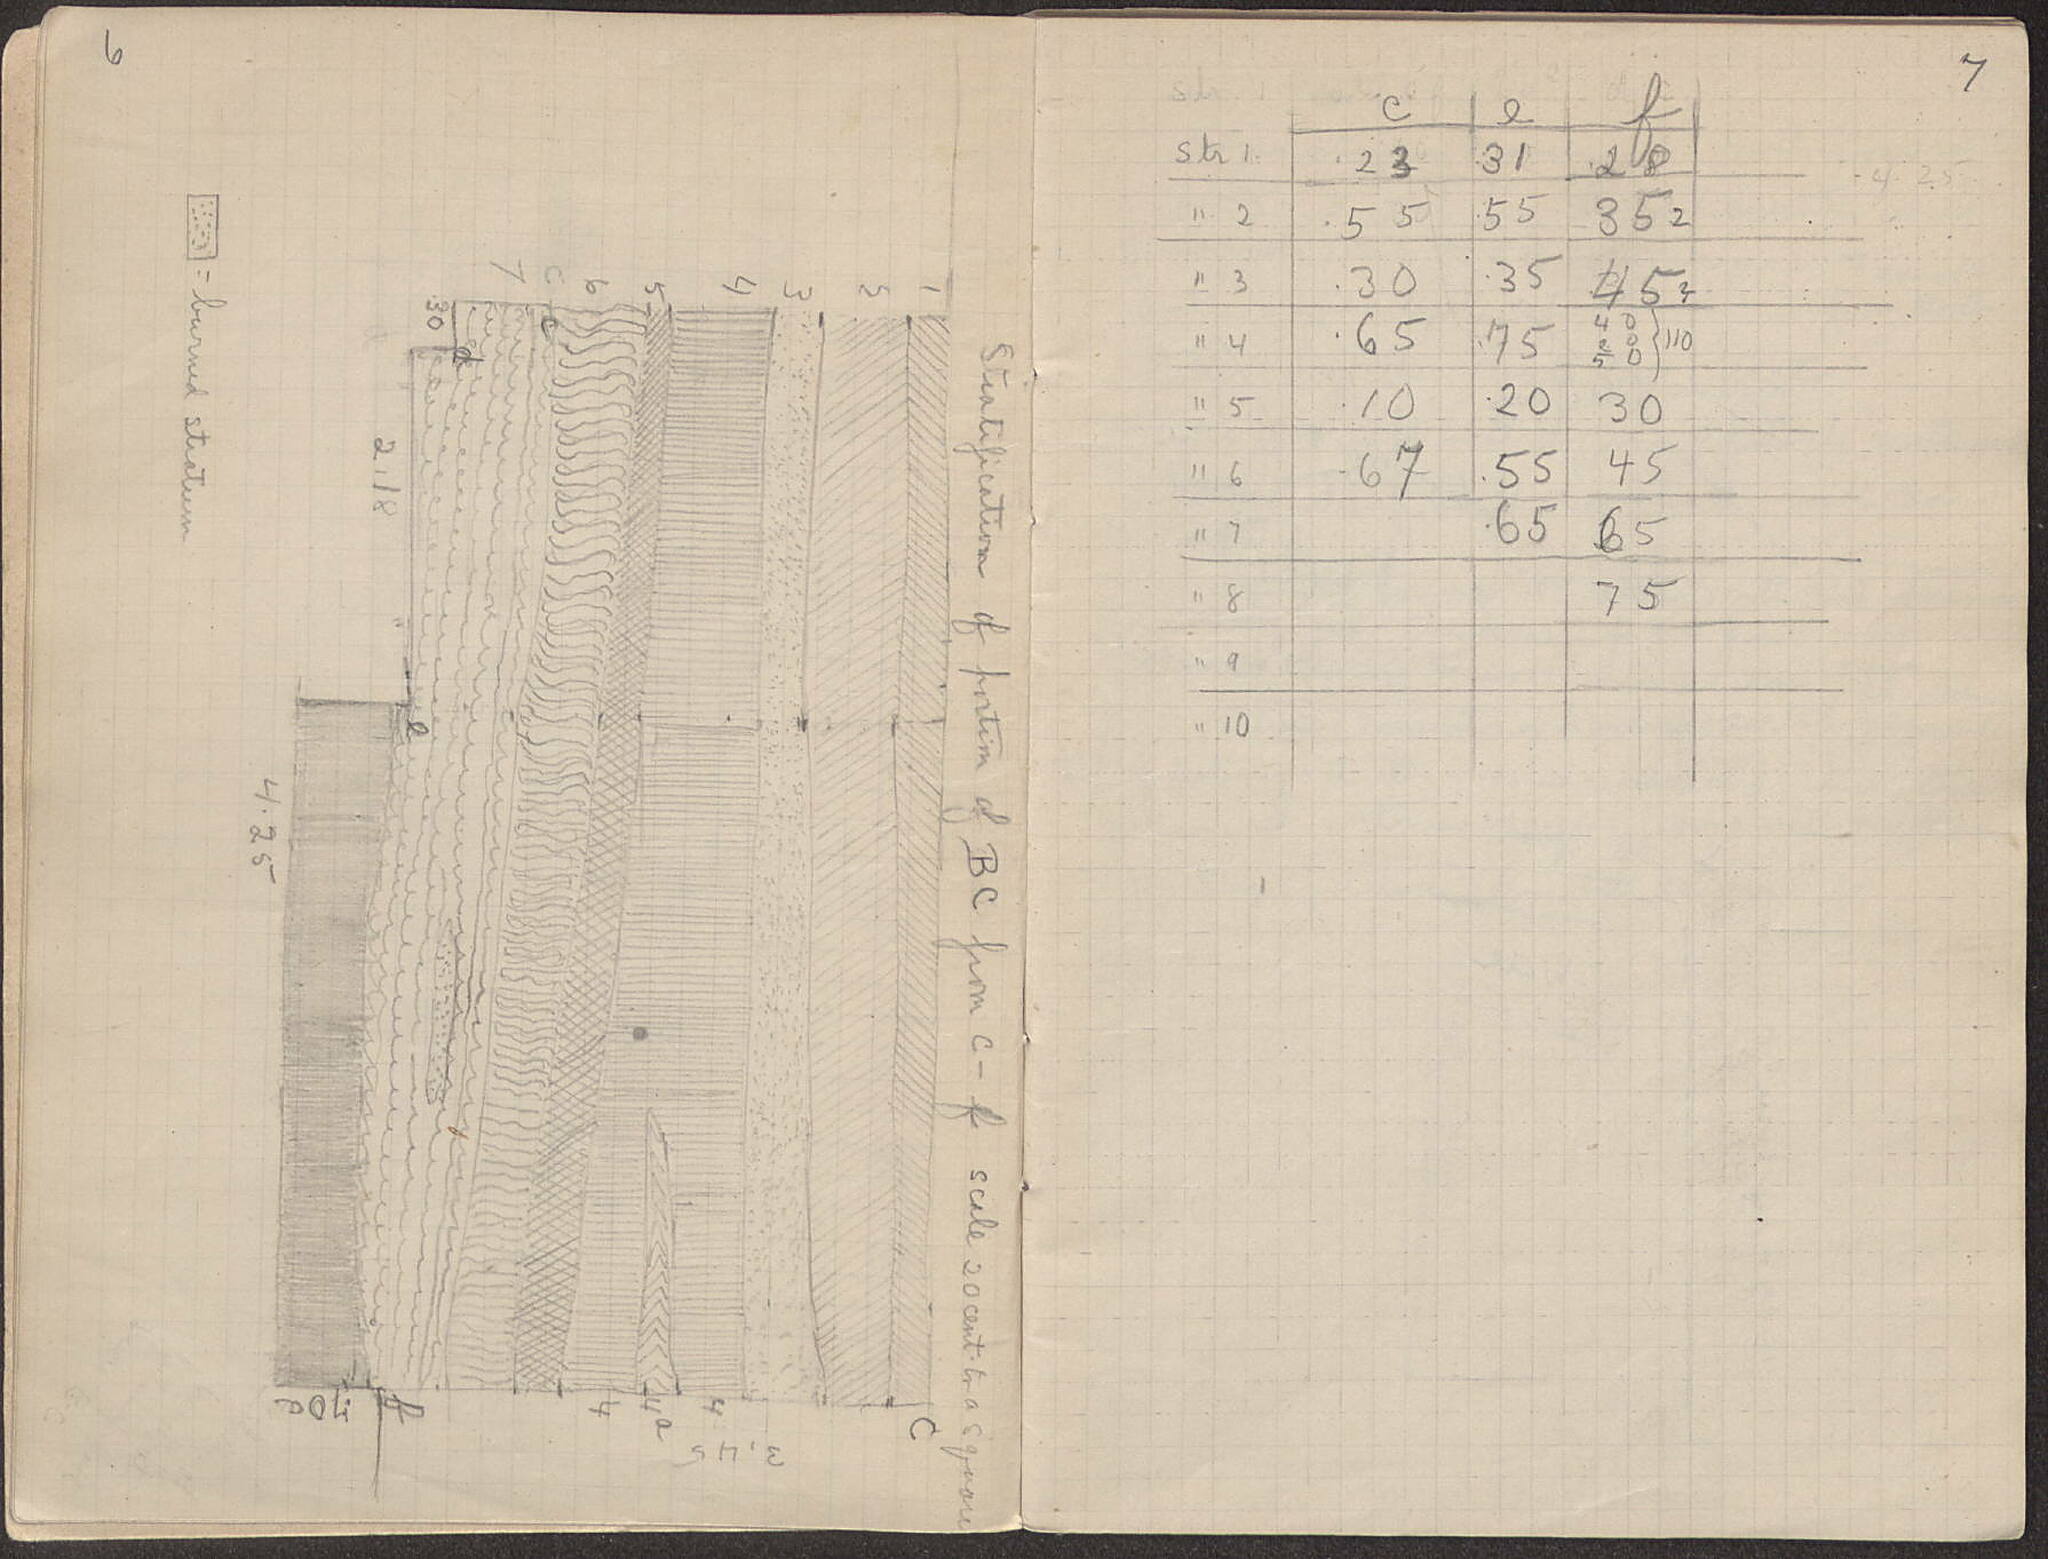 6
Stratification of portion of BC from C-f scale 20 cent. to a square
1 2 3 4 5 6 c 7
c
.30
d
2.18
e
4.25
= burned stratum
C
4 4a 4
3.45
f
7
c e f
str 1. .23 .31 .28
" 2 .55 .55 352
" 3 .30 .35 452
" 4 .65 .75 40 20 50 } 110
" 5 .10 .20 30
" 6 .67 .55 45
" 7 .65 65
" 8 75
" 9
" 10
4.25